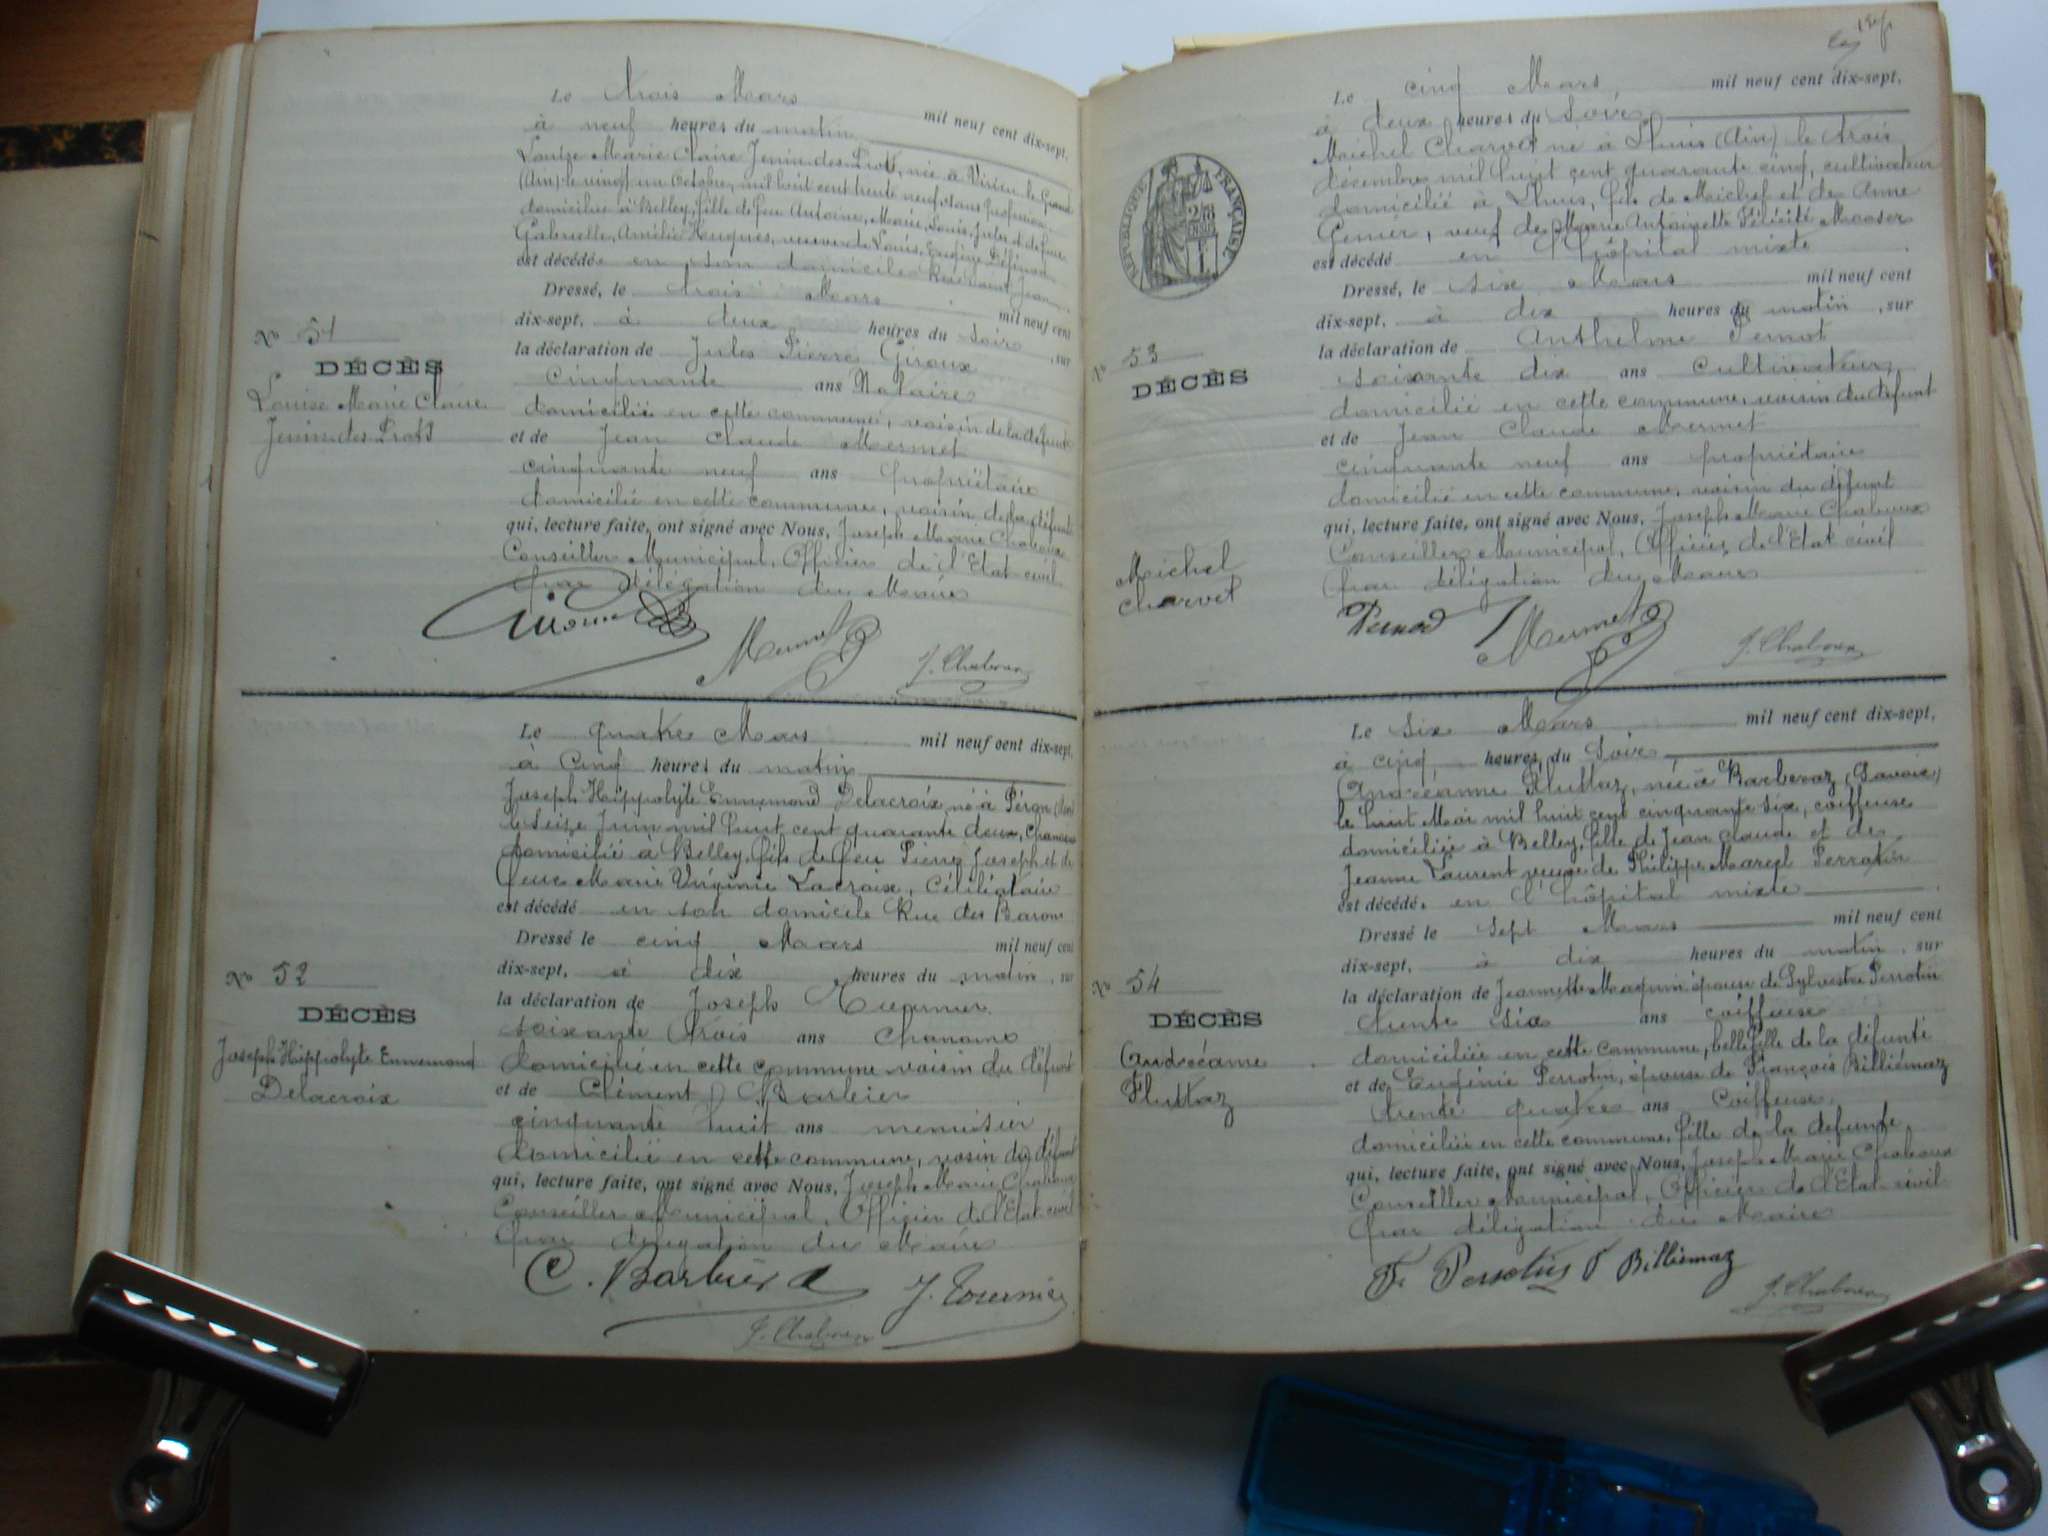 Le trois Mars mil neuf cent dix-sept,
à neuf heures du matin
Louise Marie Claire Jenin des Prots, née à Virieu le Grand
(Ain) le vingt un Octobre, mil huit cent trente neuf, sans profession
domiciliée à Belley, fille de feu Antoine, Marie, Louis, Jules et de feue
Gabrielle, Amélie Hugues, veuve de Louis, Eugène
est décédée en son domicile Rue Saint Jean
Dressé, le trois Mars mil neuf cent
dix-sept, à deux heures du soir, sur
la déclaration de Jules Pierre Giroux
cinquante ans Notaire
domicilié en cette commune, voisin de la défunte
et de Jean Claude Mermet
cinquante neuf ans propriétaire
domicilié en cette commune, voisin de la défunte
qui, lecture faite, ont signé avec Nous, Joseph Marie Chaboux
Conseiller Municipal, Officier de l'Etat civil
par délégation du Maire
Mermet J. Chaboux
No 51
DÉCÈS
Louise Marie Claire
Jenin des Prots
Le quatre Mars mil neuf cent dix-sept,
à Cinq heures du matin
Joseph Hippolyte Ennemond Delacroix né à Péron (Ain)
le seize Juin mil huit cent quarante deux, Chanoine
domicilié à Belley, fils de feu Pierre Joseph et de
feue Marie Virginie Lacroix, Célibataire
est décédé en son domicile Rue des Barons
Dressé le cinq Mars mil neuf cent
dix-sept, à dix heures du matin, sur
la déclaration de Joseph Tournier
soixante trois ans Chanoine
domicilié en cette commune voisin du défunt
et de Clément Barbier
cinquante huit ans menuisier
domicilié en cette commune, voisin du défunt
qui, lecture faite, ont signé avec Nous, Joseph Marie Chaboux
Conseiller Municipal, Officier de l'Etat civil
par délégation du Maire
C. Barbier J. Tournier
J. Chaboux
No 52
DÉCÈS
Joseph Hippolyte Ennemond
Delacroix
Le cinq Mars, mil neuf cent dix-sept,
à deux heures du Soir,
Michel Charvet né à Lhuis (Ain) le trois
décembre mil huit cent quarante cinq, cultivateur
domicilié à Lhuis, fils de Michel et de Anne
Genier, veuf de Marie Antoinette Félicité Mooser
est décédé en l'hôpital mixte
Dressé, le six Mars mil neuf cent
dix-sept, à dix heures du matin, sur
la déclaration de Anthelme Pernot
soixante dix ans Cultivateur
domicilié en cette commune, voisin du défunt
et de Jean Claude Mermet
cinquante neuf ans propriétaire
domicilié en cette commune, voisin du défunt
qui, lecture faite, ont signé avec Nous, Joseph Marie Chaboux
Conseiller Municipal, Officier de l'Etat civil
par délégation du Maire
Pernod Mermet J. Chaboux
RÉPUBLIQUE FRANÇAISE
No 53
DÉCÈS
Michel
Charvet
Le six Mars mil neuf cent dix-sept,
à cinq heures du Soir,
Andréanne Pluttaz, née à Barberaz (Savoie)
le huit Mai mil huit cent cinquante six, coiffeuse
domiciliée à Belley, fille de Jean Claude et de
Jeanne Laurent veuve de Philippe Marcel Perrotin
est décédée en l'hôpital mixte
Dressé le sept Mars mil neuf cent
dix-sept, à dix heures du matin, sur
la déclaration de Jeannette Maquin épouse de Sylvestre Perrotin
trente six ans coiffeuse
domiciliée en cette commune, belle fille de la défunte
et de Eugénie Perrotin, épouse de François Billiémaz
trente quatre ans Coiffeuse,
domiciliée en cette commune, fille de la défunte,
qui, lecture faite, ont signé avec Nous, Joseph Marie Chaboux
Conseiller Municipal, Officier de l'Etat civil
par délégation du Maire
Billiemaz J. Chaboux
No 54
DÉCÈS
Andréanne
Pluttaz